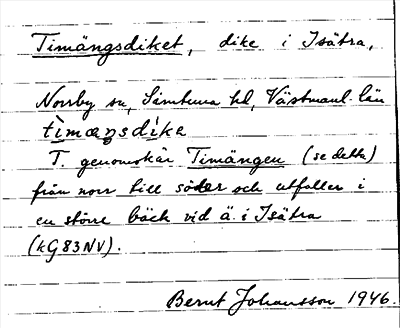 Timängsdiket, dike i Isätra,
Norrby sn, Simtuna hd, Västmanl. län
tìmæŋsdìkə
T. genomskär Timängen (se detta)
från norr till söder och utfaller i
en större bäck vid å. i Isätra
(kG83NV).
Bernt Johansson 1946.